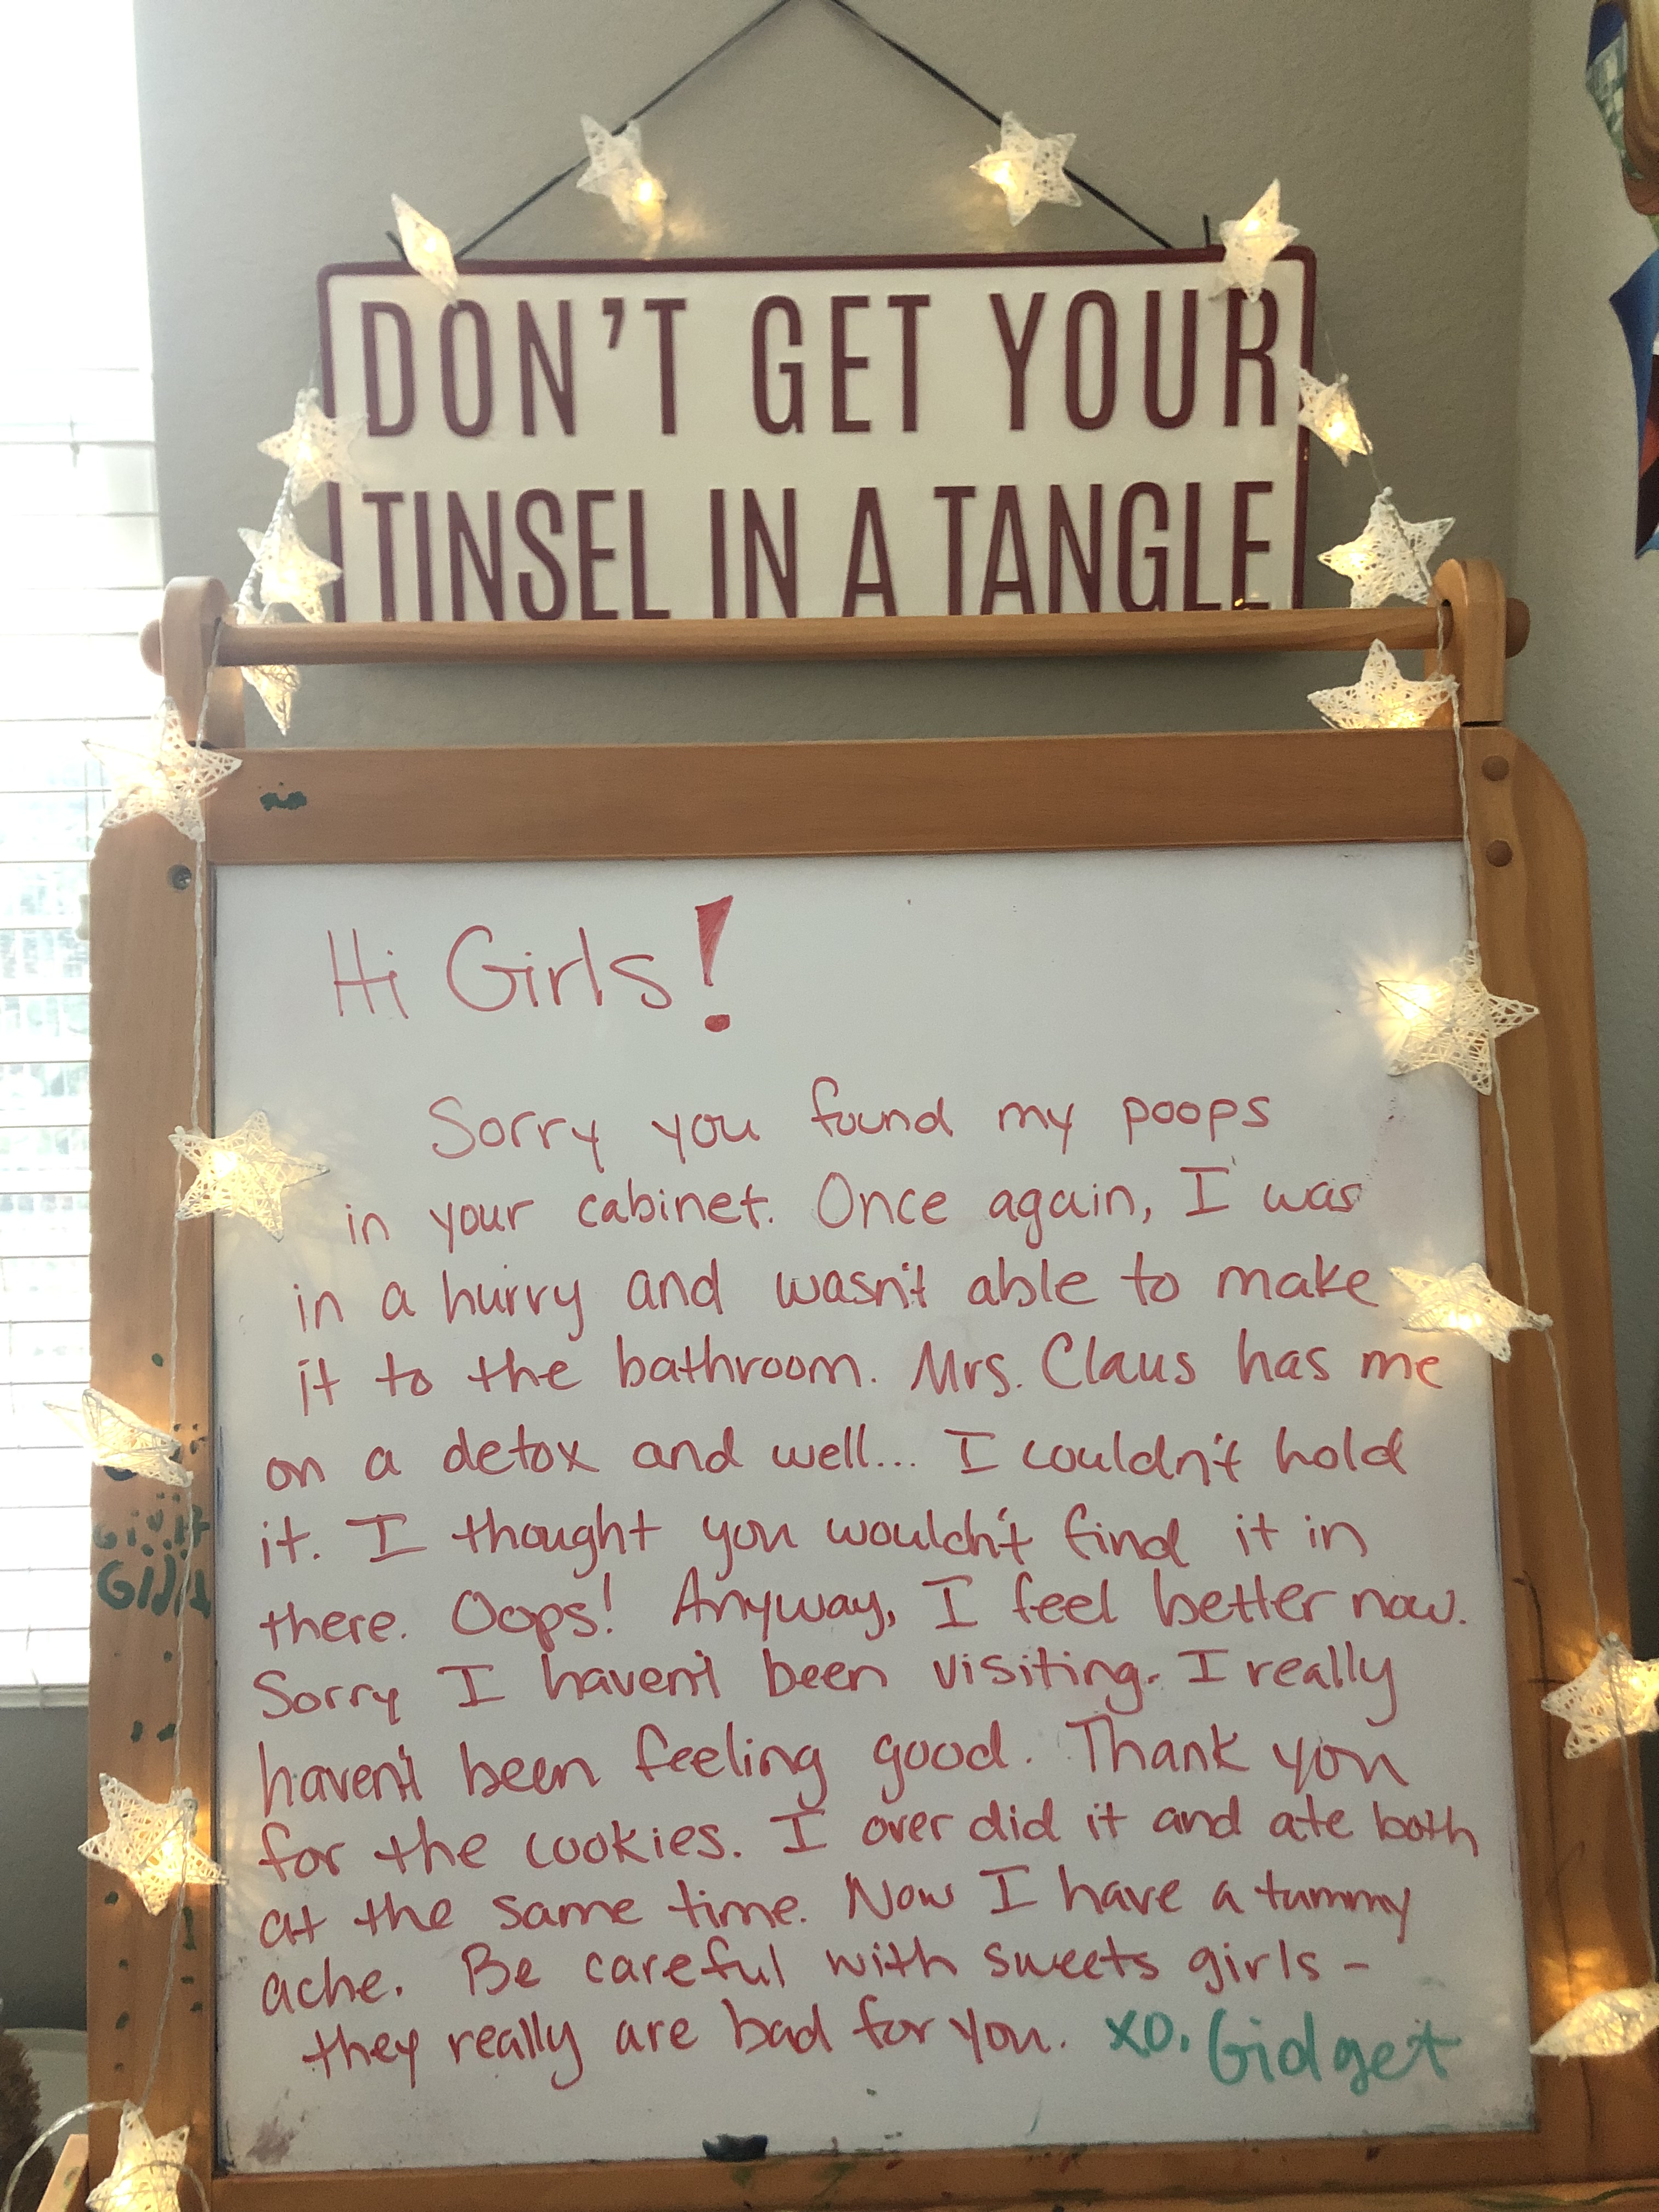 DON'T GET YOUR
TINSEL IN A TANGLE
Hi Girls!
Sorry you found my poops
in your cabinet. Once again, I was
in a hurry and wasn't able to make
it to the bathroom. Mrs. Claus has me
on a detox and well... I couldn't hold
it. I thought you wouldn't find it in
there. Oops! Anyway, I feel better now.
Sorry I haven't been visiting. I really
haven't been feeling good. Thank you
for the cookies. I over did it and ate both
at the same time. Now I have a tummy
ache. Be careful with sweets girls -
they really are bad for you. xo, Gidget